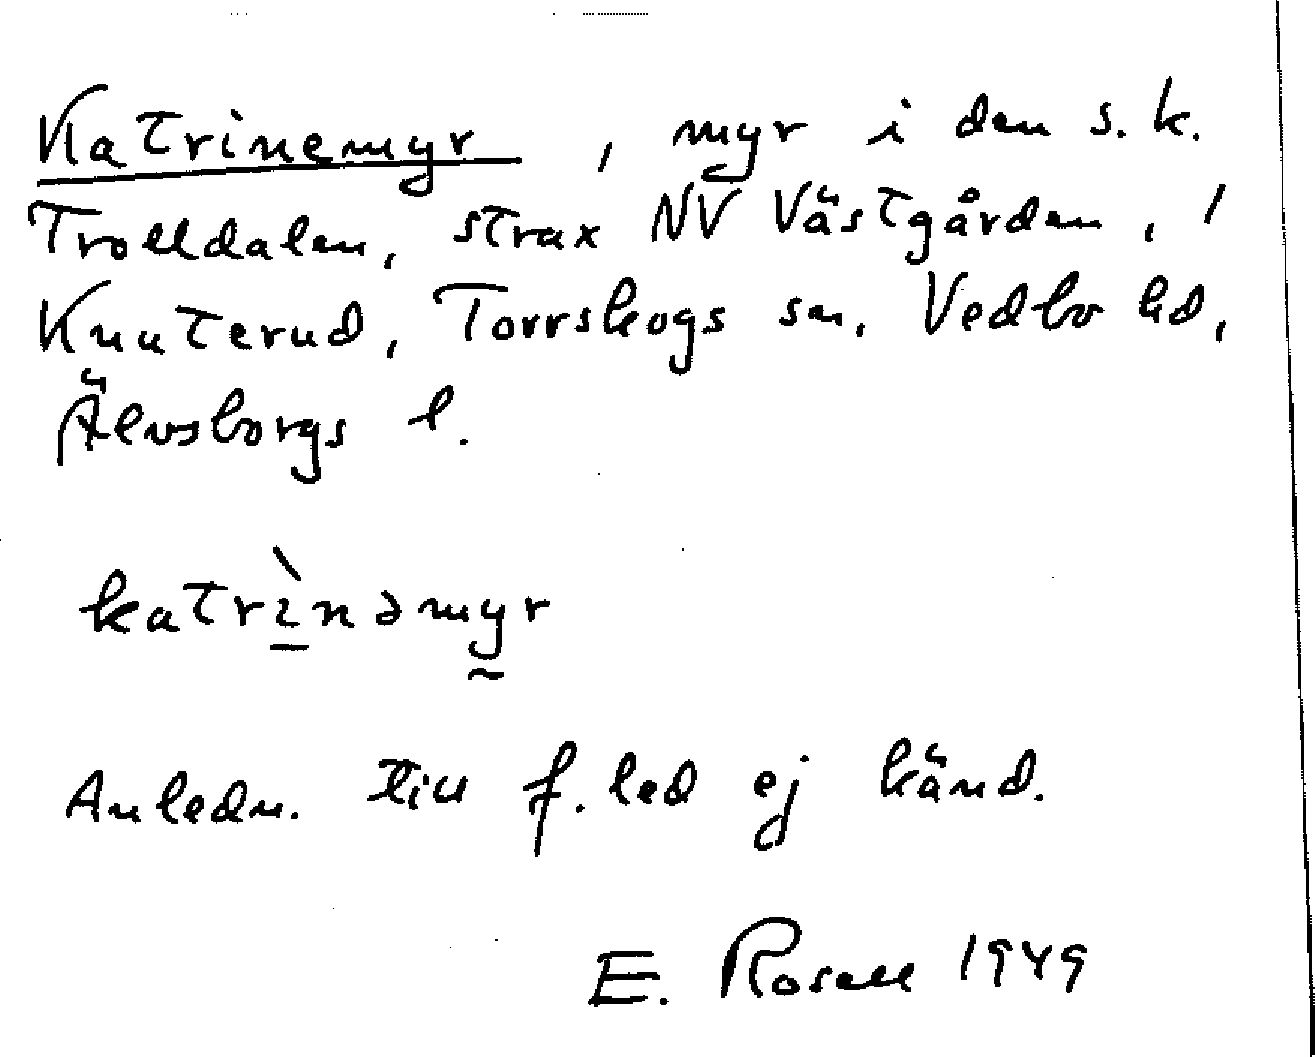 Katrinemyr, myr i den s.k.
Trolldalen, strax NV Västgården, 1
Knuterud, Torrskogs sn, Vedbo hd,
Älvsborgs l.
katrı̀nəmyr
Anledn. till f. led ej känd.
E. Rosell 1949